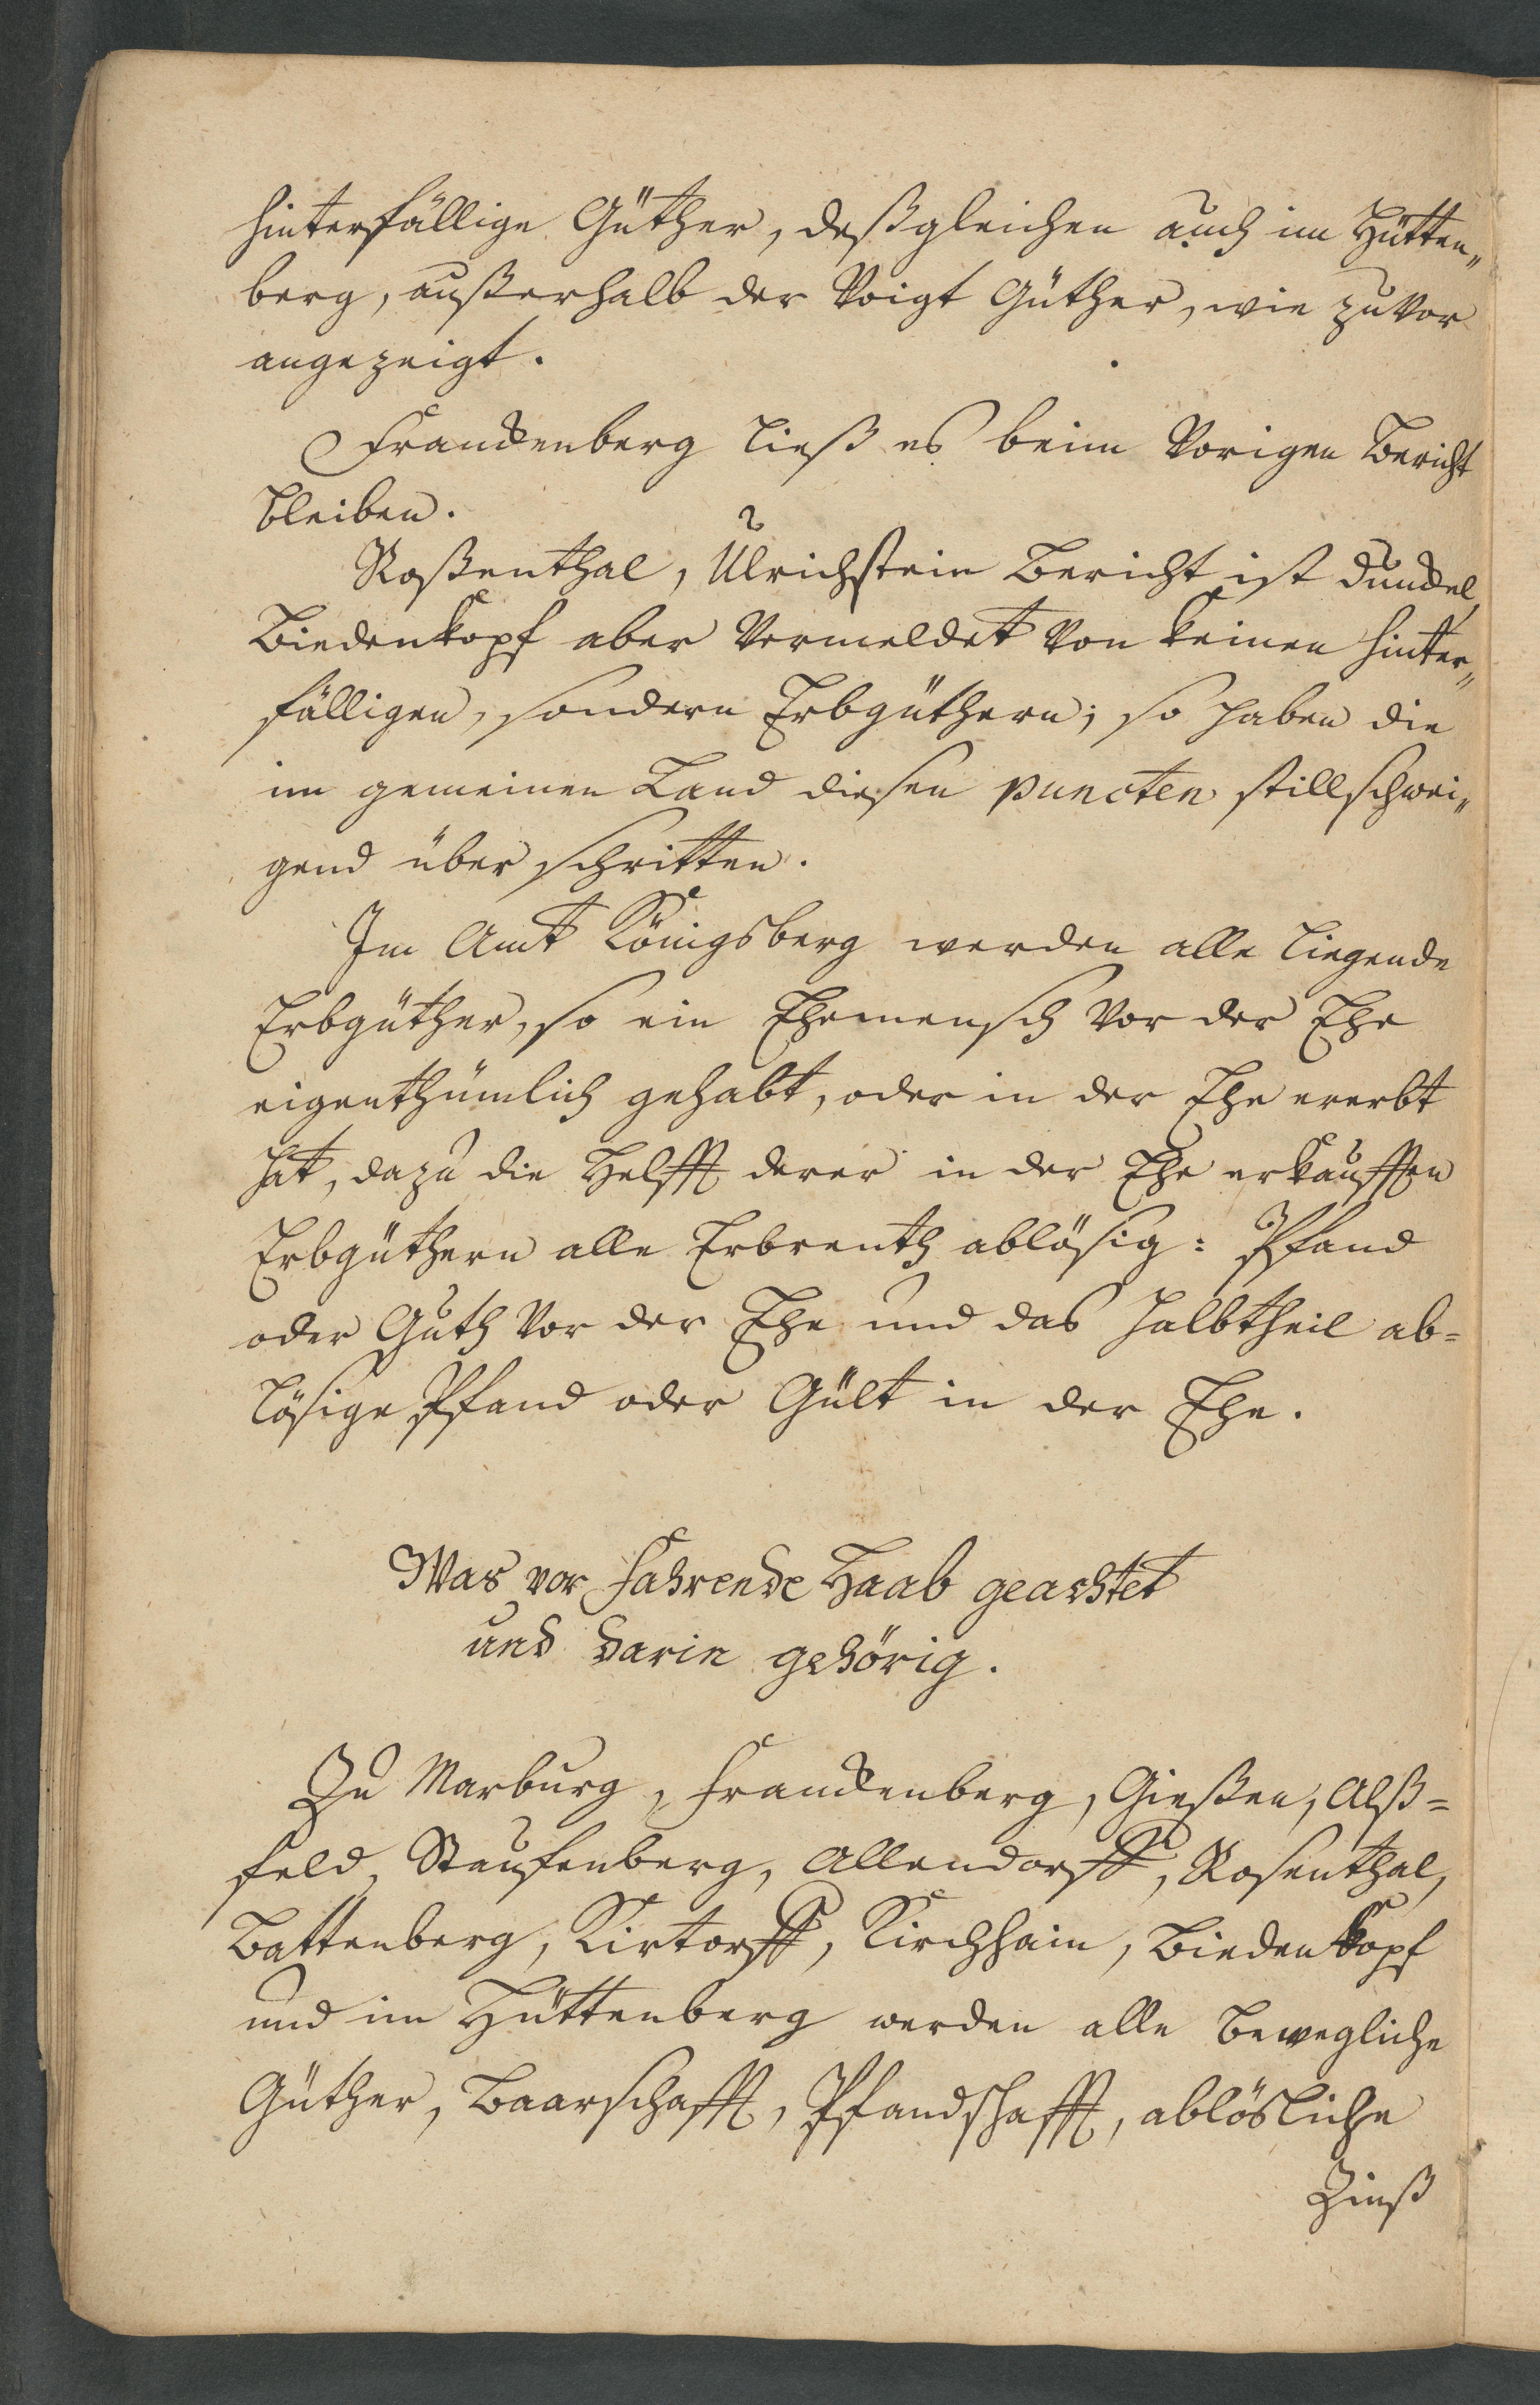 hinterfällige Güther, deßgleichen auch im Hütten„
berg, außerhalb der Voigt Güther, wie zuvor
angezeigt.
Franckenberg ließ es beim Vorigen Bericht
bleiben.
Roßenthal, Ulrichstein Bericht ist dunckel,
Biedenkopf aber Vermeldet Von keinen hinter„
fälligen, sondern Erbgüthern; so haben die
im gemeinen Land diesen puncten stillschwei„
gend über schritten.
Im Amt Königsberg werden alle liegende
Erbgüther, so ein Ehemensch Vor der Ehe
eigenthümlich gehabt, oder in der Ehe ererbt
hat, dazu die Helfft derer in der Ehe erkaufften
Erbgüthern alle Erbrenth ablösig: Pfand
oder Guth Vor der Ehe und das halbtheil ab=
lösige Pfand oder Gült in der Ehe.
Was vor fahrende Haab geachtet
und darin gehörig.
Zu Marburg, Franckenberg, Gießen, Alß=
feld, Staufenberg, Allendorff, Rosenthal,
Battenberg, Kirtorff, Kirchhain, Biedenkopf
und im Hüttenberg werden alle bewegliche
Güther, Baarschafft, Pfandschafft, ablösliche
Zinß